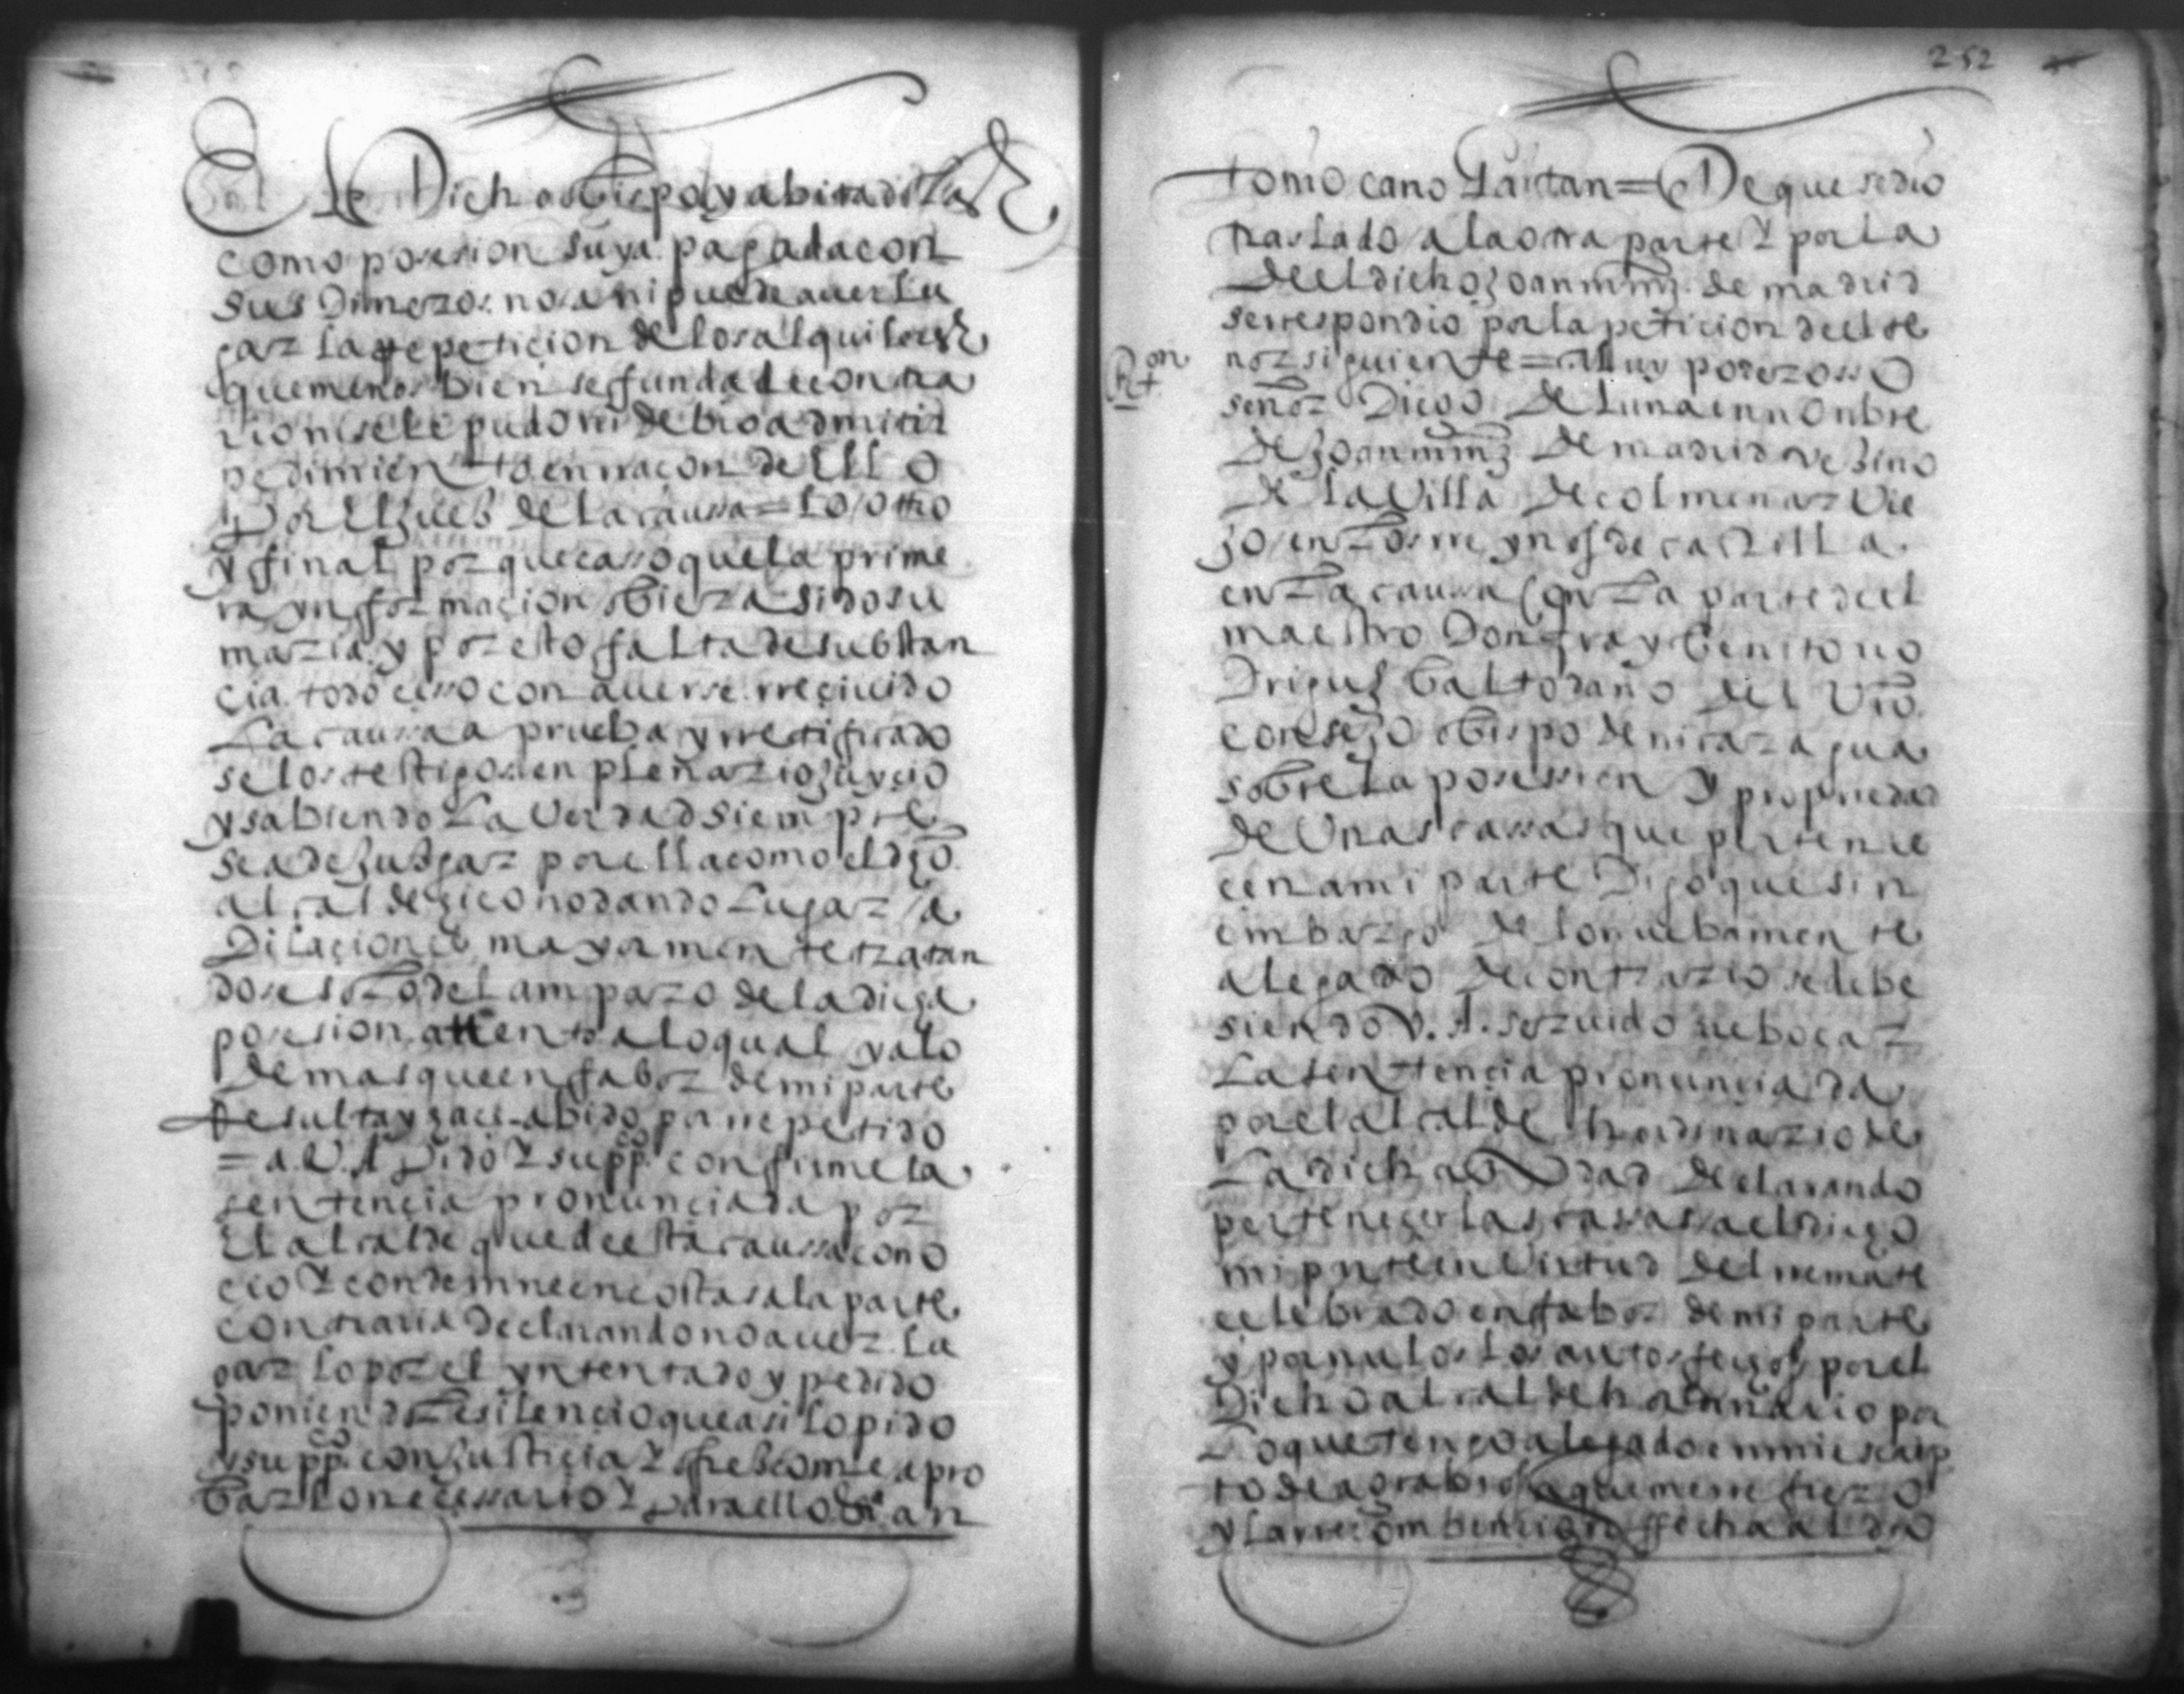 El Dicho obispo y abitadolas
como posesion suya pagada con
sus Dineros no a ni puede auer lu
gar la rrepeticion de los alquileres
que menos bien se funda de contra
rio ni se le pudo ni debio admitir
pedimiento en rraçon de ello
Por el Juez de la caussa = lo otro
y final por que casso que la prime
ra ynformaçion obiera sido su
maria y por esto falta de substan
çia todo cesso con auerse rreçiuido
La caussa a prueba y rretificado
se los testigos en plenario Juyçio
y sabiendo La Verdad siempre
se a de Juzgar por ella como el dho
alcalde hico no dando Lugar a
Dilaçiones mayormente tratan
dose solo del amparo de la dicha
posesion attento a lo qual y a lo
Demas que en fabor de mi parte
Resulta y haçe abido por rrepetido
= a V. A. Pido Y suppco confirme la
sentençia pronunçiada por
El alcalde que de esta caussa cono
cio Y condemne en costas a la parte
contraria declarando no auer lu
gar lo por el yntentado y pedido
poniendole silençio que asi lo pido
y suppco con Justiçia Y ofrezcome a pro
bar lo neçessario Y para ello &a an
252
tonio cano Gaitan = De que se dio
traslado a la otra parte Y por la
De el dicho Joan mrnz de madrid
se rrespondio por la petiçion de el te
nor siguiente = Muy poderosso
Pet.on
señor Diego De Luna en nonbre
De Joan mrnz De madrid veзino
De la Villa De colmenar Vie
jo en Los rreynos de castilla
en La caussa con La parte de el
maestro Don fray Benito rro
Drigues Baltodano del Vro
consejo obispo de nicaragua
sobre La posession y propriedad
De Unas cassas que pertene
cen a mi parte Digo que sin
embargo de lo nuebamente
alegado De contrario se debe
siendo V. A. serzuido rrebocar
La sentençia pronunçiada
por el alcalde hordinario de
La dicha Ciudad Declarando
perteneçer las cassas a el dicho
mi parte en Virtud del rremate
celebrado en fabor de mi parte
y por nulos Los autos fechos por el
Dicho alcalde hordinario por
Lo que tengo alegado en mi escrip
to de agrabios a que me rrefiero
y la rrecombençion ffecha al dho